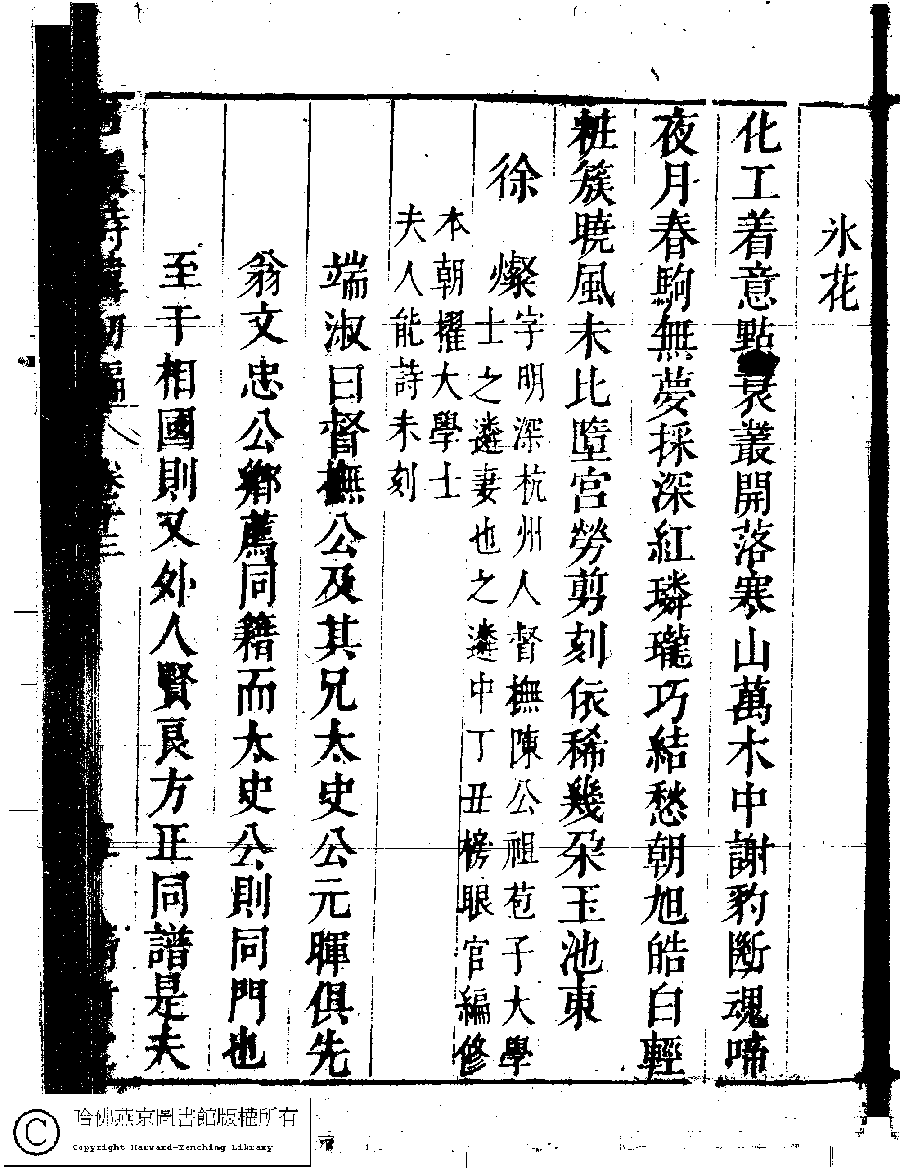 氷花
化工着意點衰叢開落寒山萬木中謝豹斷魂啼
夜月春駒無夢採深紅璘瓏巧結愁朝旭皓白輕
粧簇曉風未比隆宮勞剪刻依稀幾朶玉池東
徐 燦字明深杭州人督撫陳公祖苞子大學
士之遴妻也之遴中丁丑榜眼官編修
本朝擢大學士
夫人能詩未刻
端淑曰督撫公及其兄太史公元暉俱先
翁文忠公鄉薦同籍而太史公則同門也
至于相國則又外人賢良方正同譜是夫
詩 初編 卷十三
哈佛燕京圖書館版權所有
Copyright Harvard-Yenching Library